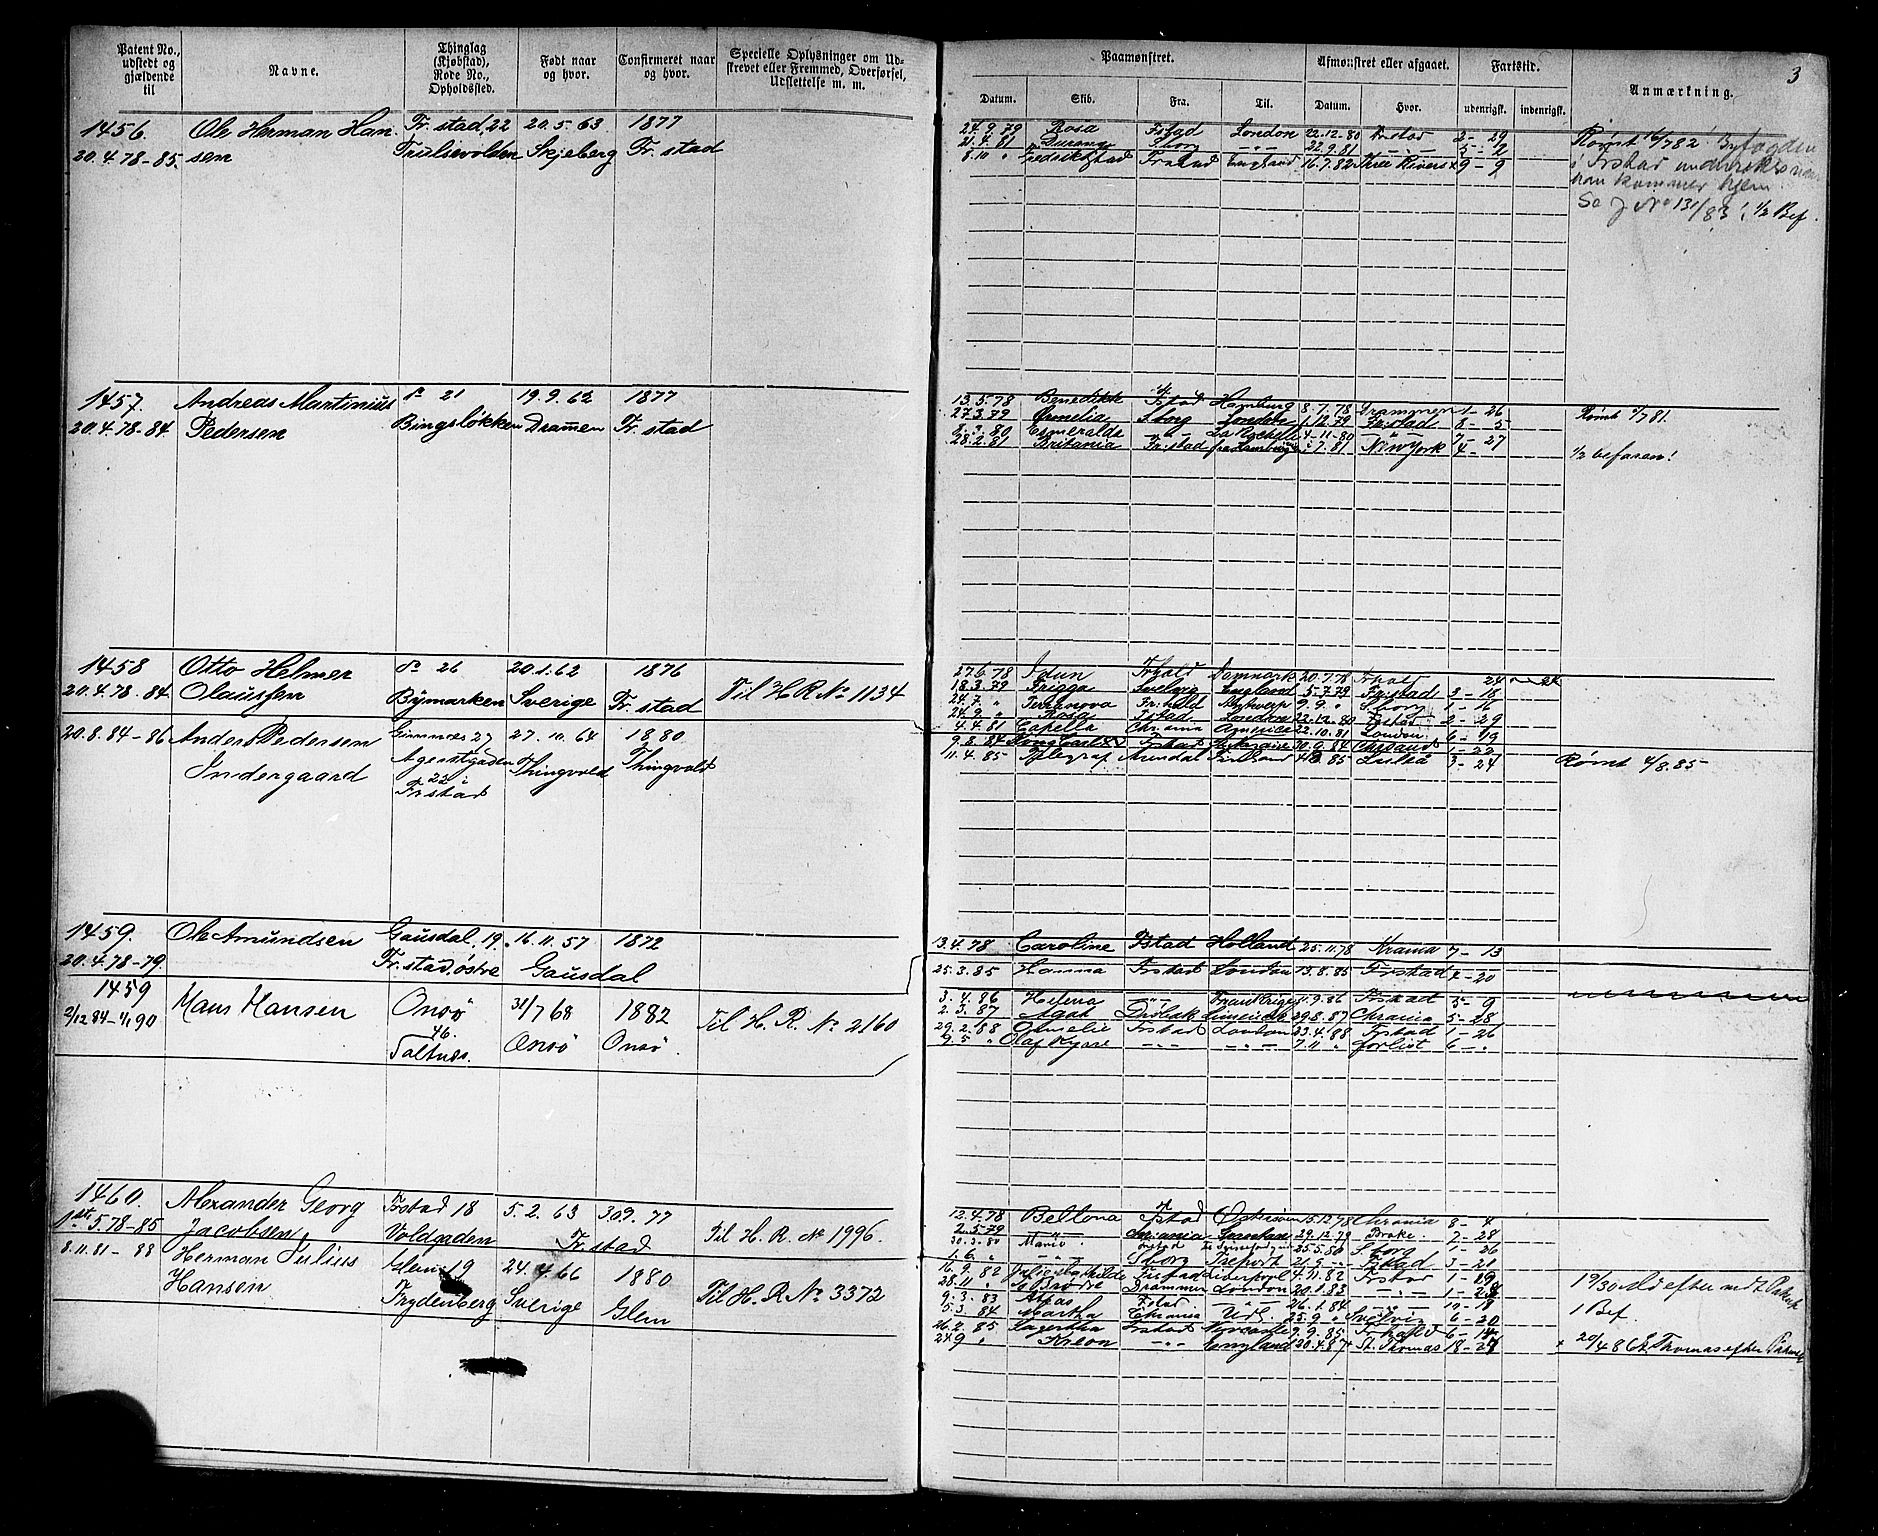 Patent No., udstedt og gjældende til
Navne.
Thinglag (Kjøbstad), Rode No., Opholdssted.
Født naar og hvor.
Confirmeret naar og hvor.
Specielle Oplysninger om Udskrevet eller Fremmed, Overførsel, Udslettelse m. m.
Paamønstret.
Afmønstret eller afgaaet.
Fartstid.
Anmærkning.
3
Datum. Skib. Fra. Til. Datum. Hvor. udenrigsk. indenrigsk.
1456. Ole Herman Han- Fr. stad, 22 20.5.63 1877
20.4.78-85 sen Trulsevolden Skjeberg Fr. stad
24.9.79 Rosa Fstad London 22.12.80 Frstad 2-29
21.4.81 Sborg -"- 22.9.81 -"- 5-2
8.10 " Fredrikstad Frstad England 16.7.82 Three Rivers x 9-9
Rømt 16/7 82 Byfogden
i Frstad
han kommer hjem
Se J No 131/83. 1/2 Bef.
1457. Andreas Martinius do 21 19.9.62 1877
20.4.78-84 Pedersen Bingsløkken Drammen Fr. stad
13.5.78 Benedikte Fstad Hamburg 8.7.78 Drammen 1-26
27.3.79 Ornelia Sborg London 1.12.79 Fr.stad 8-5
8.3.80 Esmeralda -"- La Rochelle 4-11-80 -"- 7-27
28.2.81 Britania Fr. stad 7.81 NewYork 4-
Rømt /7 81.
1/2 befaren!
1458 Otto Helmer do 26 20.1.62 1876
20.4.78-84 Olaussen Bymarken Sverige Fr. stad Til H R No 1134
27.6.78 Idun Frhald Danmark 20.7.78 Frhald 24
18.3.79 Frigga England 5.7.79 Frstad 3-18
24.7. " Terranova Fr.hald Antwerp 9.9. " Sborg 1-16
24.9. " Rosa Fstad London 22.12.80 Frstad 2-29
4.4.81 Capella Chrania Amerika 22.10.81 London 6-19
20.8.84-86 Anders Pedersen 27 27.10.64 1880
Indergaard Agentgaden Thingvold Thingvold
22
Frstad
9.8.84 Frstad 30.9.84 Chrsand 1-22
11.4.85 Telegraf Arendal 4.8.85 3-24
Rømt 4/8.85
1459. Ole Amundsen Gausdal, 19. 16.11.57 1872
20.4.78-79. Fr. stad, østre Gausdal
13.4.78 Caroline Fstad Holland 25.11.78 Krania 7-13
1459 Maus Hansen Onsö 31/7 68 1882
2/12 84-1/1 90 46. Onsö Onsö. Til H. R. No 2160
25.3.85 Hanna Frstad London 13.8.85 Frstad 4-20
3.4.86 Helena -"- Frankrige 9.86 Frstad 5-9
2.3.87 Agat Drøbak Limerick 29.8.87 Chrania 5-28
29.2.88 Ornelie Frstad London 23.4.88 Frstad 1-26
9.5 " Olaf Kyrre -"- -"- 7.11 " forlist 6-"
1460. Alexander Georg Frstad 18 5.2.63 30.9.77
1ste 5.78-85 Jacobsen Voldgaden Fr. stad Til H. R. No 1996.
12.4.78 Bellona Fstad 15.12.78 Chrania 8-4
2.5.79 29.12.79 Brake. 7-28
30.3.80 Mario Frstad 25.5.80 Sborg 1-26
1.6. " -"- Sborg Treport 3-21
8.11.81-88 Herman Julius Glem 19 24.4.66 1880
Hansen Frydenberg Sverige Glem Til H. R. No. 3372
16.9.82 Frstad Liverpool 4.11.82 Frstad 1-19
28.11 " Drammen London 20.1.83 -"- 1-24
9.3.83 Atlas Fstad -"- 26.1.84 -"- 10-18
5.3.84 Martha Chrania Utl. 25.9 " Svelvig 6-20
26.2.85 Lagertha Frstad 9.9.85 Frhald 6-14
24.9 " Kreon -"- England 20.4.87 St. Thomas 18-27
1 Bef.
+ 20/4 86 St Thomas efter